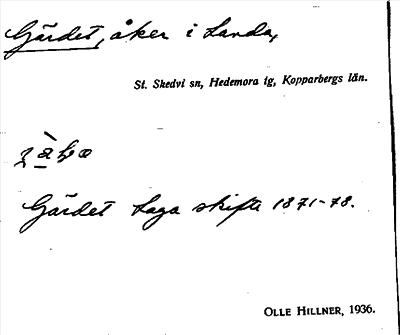 Gärdet, åker i Landa,
St. Skedvi sn, Hedemora tg, Kopparbergs län.
Gärdet Laga skifte 1871-78.
OLLE HILLNER, 1936.